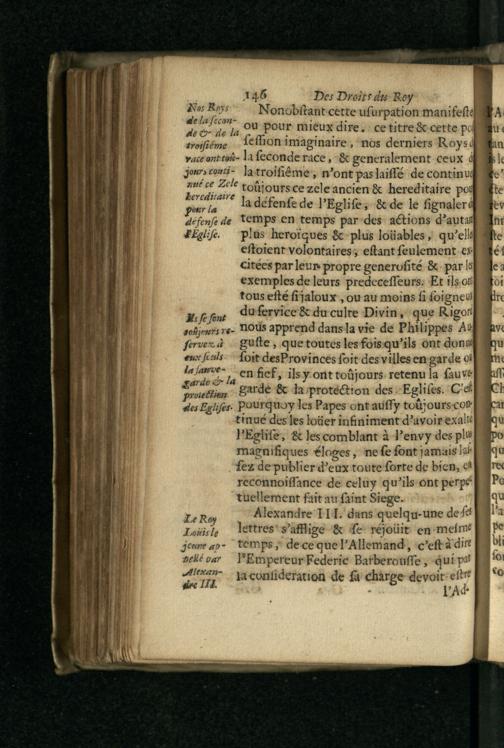 146 Des Droits du Roy
Nos Roys
de la secon-
de & de la
troisiéme
race ont toû-
jours conti-
nué ce Zele
hereditaire
pour la
défense de
l'Eglise.
Nonobstant cette usurpation manifeste
ou pour mieux dire, ce titre & cette po
session imaginaire, nos derniers Roys d
la seconde race, & generalement ceux d
la troisiéme, n'ont pas laissé de continue
toûjours ce zele ancien & hereditaire pou
la défense de l'Eglise, & de le signaler d
temps en temps par des actions d'autan
plus heroïques & plus loüables, qu'elle
estoient volontaires, estant seulement ex-
citées par leur propre generosité & par les
exemples de leurs predecesseurs. Et ils ont
tous esté si jaloux, ou au moins si soigneux
du service & du culte Divin, que Rigord
Ils se sont
toûjours re-
servez à
eux seuls
la sauve-
garde & la
protection
des Eglises.
nous apprend dans la vie de Philippes Au
guste, que toutes les fois qu'ils ont donné
soit des Provinces soit des villes en garde ou
en fief, ils y ont toûjours retenu la sauve
garde & la protection des Eglises. C'est
pourquoy les Papes ont aussy toûjours con-
tinué des les loüer infiniment d'avoir exalté
l'Eglise, & les comblant à l'envy des plus
magnifiques éloges, ne se sont jamais las-
sez de publier d'eux toute sorte de bien, en
reconnoissance de celuy qu'ils ont perpe-
tuellement fait au saint Siege.
Le Roy
Louis le
jeune ap-
pellé par
Alexan-
dre III.
Alexandre III. dans quelqu-une de ses
lettres s'afflige & se rejoüit en mesme
temps, de ce que l'Allemand, c'est à dire
l'Empereur Federic Barberousse, qui par
la consideration de sa charge devoit estre
l'Ad-